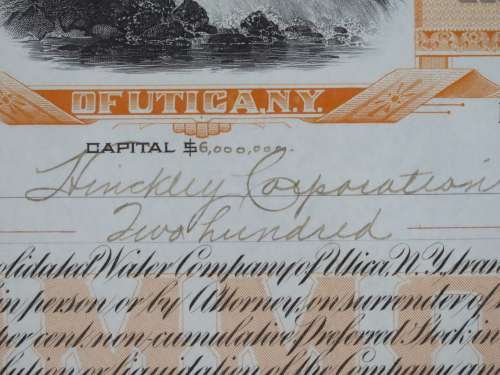 OF UTICA, N.Y.
CAPITAL $6,000,000.
Hinckley Corporation
Two hundred
solidated Water Company of Utica, N.Y., tran
in person or by Attorney, on surrender of
per cent. non-cumulative, Preferred Stock; in
lution or liquidation of the Company a